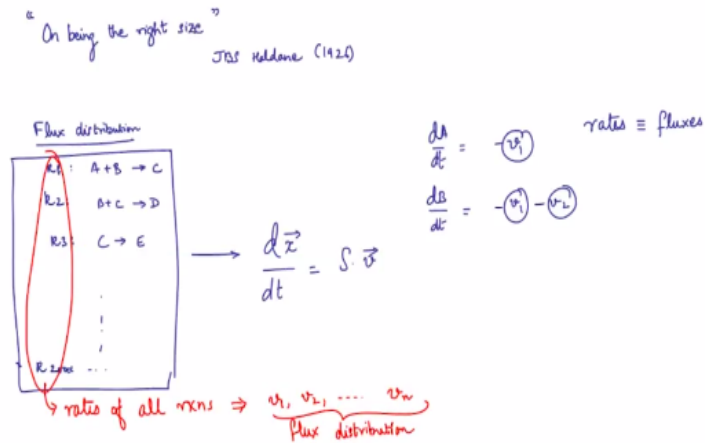 "On being the right size"
JBS Haldane (1926)
Flux distribution
R1: A+B → C
R2: B+C → D
R3: C → E
...
dx⃗/dt = S.v⃗
dA/dt = -v₁
dB/dt = -v₁ - v₂
rates ≡ fluxes
rates of all rxns ⇒ v₁, v₂, .... vₙ
flux distribution